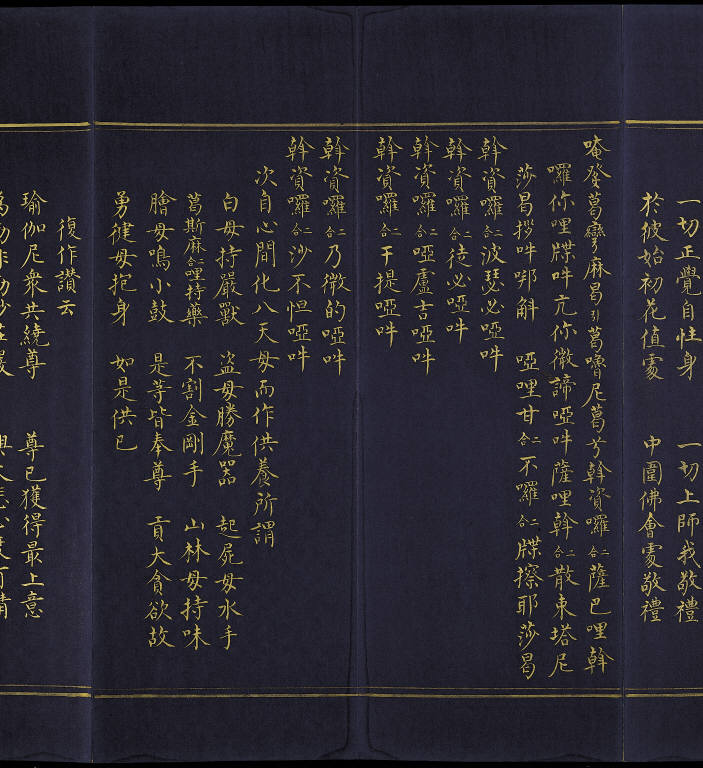 一切正覺自性身　一切上師我敬禮
於彼始初花值處　中圍佛會處敬禮
唵癹葛彎麻曷引葛嚕尼葛兮斡資囉二合薩巴哩斡
囉你哩牒吽亢你徹諦啞吽薩哩斡二合散東塔尼
莎曷拶吽郍斛　啞哩甘二合不囉二合牒擦耶莎曷
斡資囉二合波瑟必啞吽
斡資囉二合徒必啞吽
斡資囉二合啞盧吉啞吽
斡資囉二合干提啞吽
斡資囉二合乃微的啞吽
斡資囉二合沙不怛啞吽
次自心間化八天母而作供養所謂
白母持嚴獸　盜母勝魔器　起屍母水手
葛斯麻二合哩持藥　不割金剛手　山林母持味
膾母鳴小鼓　是等皆奉尊　貢大貪欲故
勇健母抱身　如是供已
復作讚云
瑜伽尼衆共繞尊　尊已獲得最上意